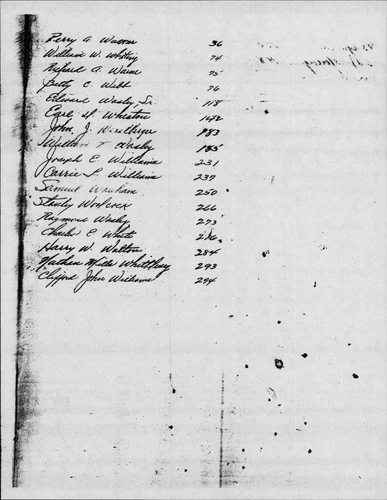 Perry A. Warner 36
William W. Whiting 74
Buford A. Warne 75
Betty C. Webb 76
Edward Wasley, Sr. 118
Earl H. Wheaton 142
John J. 183
William T. Wasley 185
Joseph E. Williams 231
Carrie L. Williams 237
Samuel 250
Stanly Woolcock 266
Raymond Wasley 273
Charles E. White 276
Harry W. Walton 284
Nathan Mills Whittlesey 293
Clifford John Williams 294